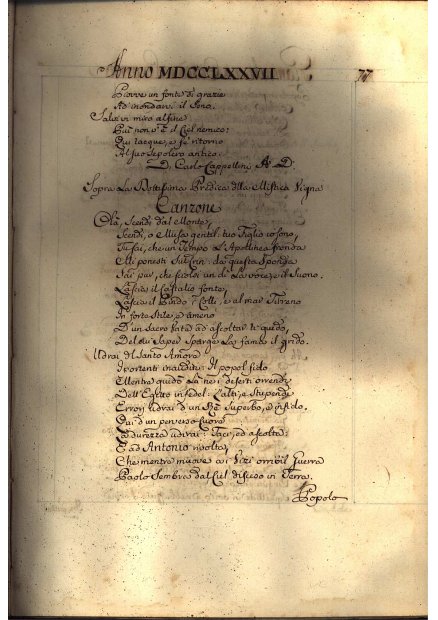 Anno MDCCLXXVII 77
Piove un fonte di grazie
Ad inondarvi il Seno.
Salvi vi miro alfine
Più non v'è il Ciel nemico:
Qui tacque, e fè ritorno
Al suo Sepolcro antico.
D. Carlo Cappellini A. D.
Sopra La Dottissima Predica della Mistica Vigna
Canzone
Olà, Scendi dal Monte,
Scendi, o Musa gentil: tuo Figlio io sono,
Tu sai, che un tempo L'Apollinea fronda
Mi ponesti Sul crin: da questa Sponda
Fai pur, che s'ascolti un dì La voce, e il Suono.
Lascia il Castalio fonte,
Lascia il Pindo, i Colli, e al mar Tirreno
In forte Stile, e ameno
D'un Sacro Vate ad ascoltar te guido,
Del cui Saper Sparge La fama il grido.
Udrai di Santo Amore
I portenti inauditi: Il popol fido
Mentre guido La ne' deserti orrendi
Dell'Egitto infedel: L'alti, e Stupendi
Errori udrai d'un Rè Superbo, e infido,
Qui d'un perverso Cuore
La durezza udirai: Taci, ed ascolta:
E ad ANTONIO rivolta,
Che mentre muove a i Vizi orribil Guerra
Paolo Sembra dal Ciel disceso in Terra.
Popolo